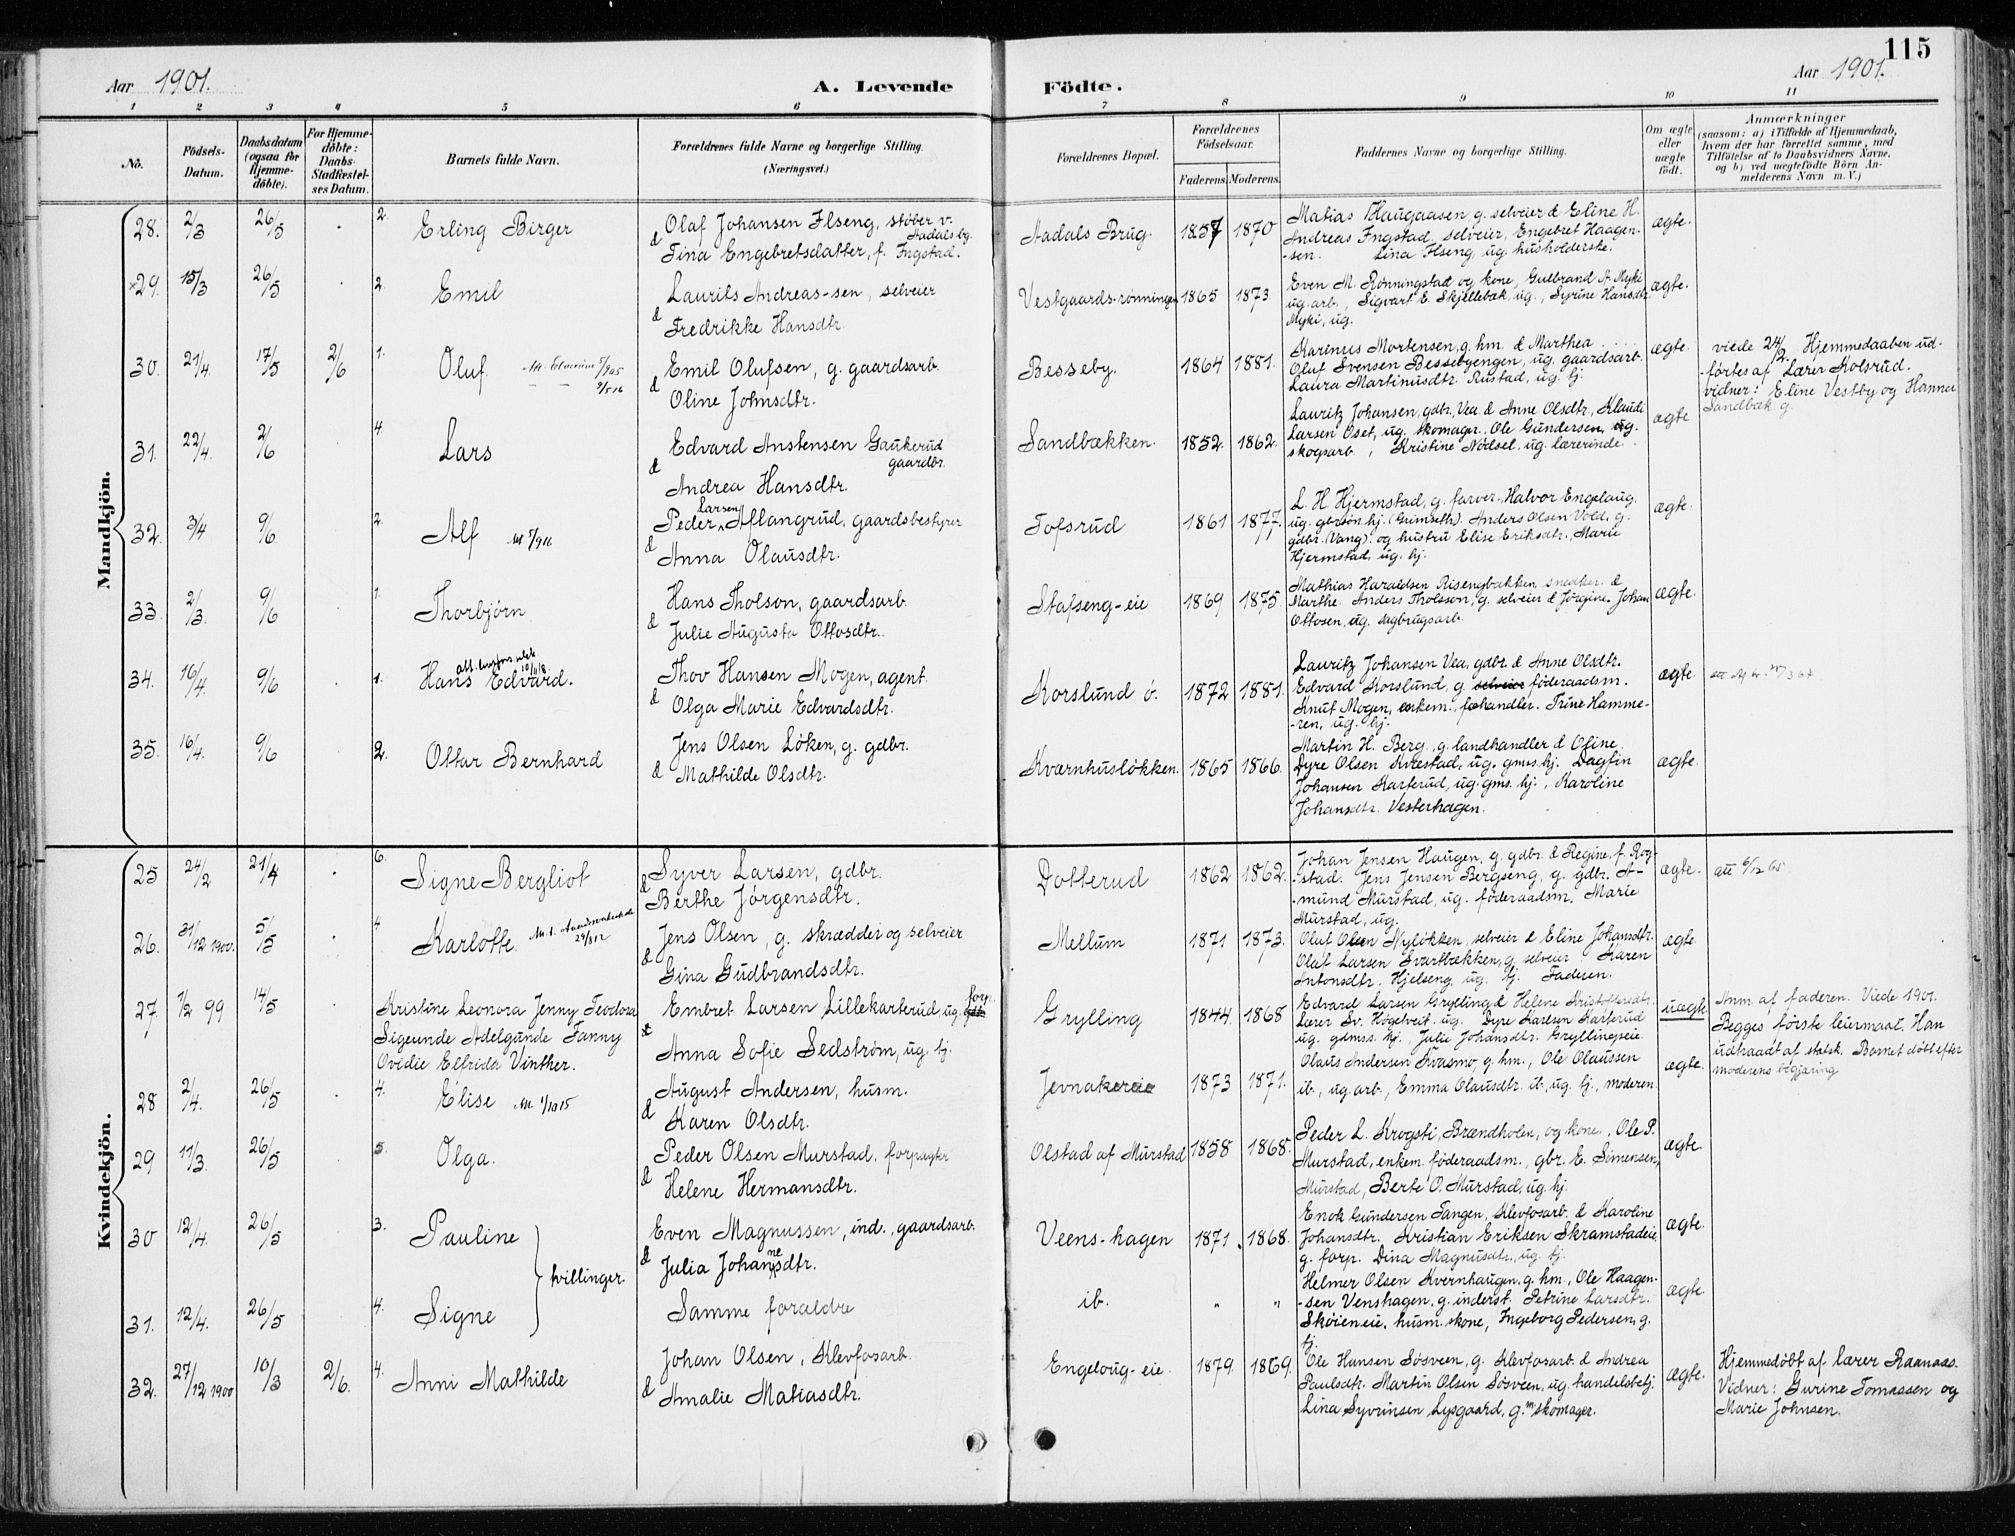 115
Aar 1901.
A. Levende
Födte.
Aar 1901.
1 2 3 4 5 6 7 8 9 10 11
No.
Födsels-Datum.
Daabsdatum (ogsaa for Hjemmedöbte).
For Hjemmedöbte: Daabs-Stadfæstelses Datum.
Barnets fulde Navn.
Forældrenes fulde Navne og borgerlige Stilling. (Næringsvei.)
Forældrenes Bopæl.
Forældrenes Födselsaar.
Faderens. Moderens.
Faddernes Navne og borgerlige Stilling.
Om ægte eller uægte födt.
Anmærkninger (saasom: a) i Tilfælde af Hjemmedaab, hvem der har forrettet samme, med Tilföielse af to Daabsvidners Navne, og b) ved uægtefödte Börn Anmelderens Navn m. V.)
Mandkjön.
28. 2/3 26/5 2. Erling Birger
Olaf Johansen Ilseng, støber v. Aadals bg.
& Tina Engebretsdatter, f. Ingstad.
Aadals Brug. 1857 1870
Matias Haugaasen, g. selveier & Eline H.
Andreas Ingstad, selveier, Engebret Haagen-
-sen. Lina Ilseng, ug. husholderske.
ægte.
29. 15/3 26/5 2. Emil
Laurits Andreas-sen, selveier
& Fredrikke Hansdtr.
Vestgaards-rønningen 1865 1873
Even M. Rønningstad og kone, Gulbrand A. Myki
ug. arb., Sigvart E. Skjellebæk, ug., Syrine Hansdtr.
Myki, ug.
ægte.
30. 21/4. 17/5 2/6 1. Oluf.
Emil Olufsen, g. gaardsarb.
& Oline Johnsdtr.
Besseby. 1864 1881.
Karinus Mortensen, g. hm. & Marthea
Oluf Svensen Bessebyengen, ug. gaardsarb.
Laura Martinusdtr. Rustad, ug. hj.
ægte.
viede 24/2. Hjemmedaaben ud-
-førtes af Lærer Kolsrud.
vidner: Eline Vestby og Hanna
Sandbæk g.
31. 22/4. 2/6 4. Lars
Edvard Anstensen Gaukerud gaardbr.
& Andrea Hansdtr.
Sandbækken. 1852. 1862.
Lauritz Johansen, gdbr. Vea & Anne Olsdtr., Klaudi
Larsen Oset, ug. skomager, Ole Gundersen, ug.
skogsarb., Kristine Nødsel, ug. lærerinde.
ægte
32. 3/4 9/6 2. Alf
Peder Larsen Aflangrud, gaardsbestyrer
& Anna Olausdtr.
Tofsrud 1861 1877.
L. H. Hjermstad, g. farver, Halvor Engelaug,
ug. gbrsøn hj. (Grimseth). Anders Olsen Vold, g.
gdbr. (Vang) og hustru Elise Eriksdtr., Marie
Hjermstad, ug. hj.
ægte.
33. 2/3. 9/6 1. Thorbjørn
Hans Tholson, gaardsarb.
& Julie Augusta Ottosdtr.
Stafseng-eie 1869 1875.
Mathias Haraldsen Risengbakken, snedker. &
Marthe. Anders Tholsson, g. selveier & Jørgine. Johan
Ottosen, ug. sagbrugsarb.
ægte.
34. 16/4. 9/6 1. Hans Edvard.
Thov Hansen Mogen, agent.
& Olga Marie Edvardsdtr.
Korslund ö. 1872 1881.
Lauritz Johansen Vea, gdbr. & Anne Olsdtr.
Edvard Korslund, g. selveier føderaadsm.
Knut Mogen, enkem. forhandler. Trine Hamme-
-ren, ug. hj.
ægte.
35. 16/4. 9/6 2. Ottar Bernhard
Jens Olsen Løken, g. gdbr.
& Mathilde Olsdtr.
Kværnhusløkken. 1865 1866.
Martin H. Berg, g. landhandler & Oline.
Dyre Olsen Kvæstad, ug. gmss. hj. Dagfin
Johansen Karterud, ug. gms. hj., Karoline
Johansdtr. Vesterhagen.
ægte.
Kvindekjön.
25 24/2 21/4 6. Signe Bergliot
Syver Larsen, gdbr.
& Berthe Jørgensdtr.
Dotterud 1862 1862.
Johan Jensen Haugen, g. gdbr. & Regine, f. Rog-
-stad. Jens Jensen Bergseng, g. gdbr. A-
-mund Murstad, ug. føderaadsm. Marie
Murstad, ug.
ægte.
26. 31/12 1900. 5/5 4 Karlotte.
Jens Olsen, g. skrædder og selveier
& Gina Gudbrandsdtr.
Mellum 1871 1873.
Oluf Olsen Nyløkken, selveier & Eline Johansdtr.
Olaf Larsen Svartbækken, g. selveier Karen
Antonsdtr. Hjelseng, ug. hj. Faderen.
ægte
27. 1/2 99 14/5 Kristine Leonora Jenny Teodora
Sigeunde Adelgunde Fanny
Ovidie Elfrida Vinther.
Embret Larsen Lillekarterud ug. forp.
& Anna Sofie Sedstrøm, ug. hj.
Grylling 1844. 1868
Edvard Larsen Grylling & Helene Kristoffersdtr.
Lærer Sv. Høgetveit, ug. Dyre Karlsen Karterud
ug. gdmss. hj., Julie Johansdtr. Gryllingseie
uægte.
Anm. af faderen. Viede 1901.
Begges første leiermaal. Han
udtraadt af statsk. Barnet døbt efter
moderens begjæring
28 2/4. 26/5 4. Elise
August Andersen, husm.
& Karen Olsdtr.
Jevnakereie 1873 1871.
Olaus Andersen Kvasmo, g. hm., Ole Olaussen
ib., ug. arb., Emma Olausdtr. ib., ug. hj., moderen.
ægte.
29 11/3. 26/5 5. Olga.
Peder Olsen Murstad, forpagter
& Helene Hermansdtr.
Olstad af Murstad 1858 1868.
Peder L. Krogsti, Brændholen, og kone., Ole P.
Murstad, enkem. føderaadsm., gbr. E. Simensen,
Murstad, Berte O. Murstad, ug. hj.
ægte.
30 12/4. 26/5 3. Pauline
Even Magnussen, ind., gaardsarb.
& Julia Johannesdtr.
Veens-hagen 1871. 1868.
Enok Gundersen Tangen, Klevfosarb. & Karoline
Johansdtr. Kristian Eriksen Skramstadeie,
g. forp. Dina Magnusdtr., ug. hj.
ægte.
tvillinger.
31. 12/4. 26/5 4. Signe
Samme forældre
ib. " "
Helmer Olsen Kvernhaugen, g. hm., Ole Haagen-
-sen Venshagen, g. inderst. Petrine Larsdtr.
Skøieneie, husm. skone, Ingeborg Pedersen, g.
hj.
ægte.
32. 27/12 1900 10/3 2/6. 4. Anni Mathilde
Johan Olsen, Klevfosarb.
& Amalie Matiasdtr.
Engeloug-eie. 1879. 1869.
Ole Hansen Søsveen, g. Klevfosarb. & Andrea
Paulsdtr. Martin Olsen Søsveen, ug. handelsbetj.
Lina Syvrinsen Lysgaard, g. m skomager.
ægte.
Hjemmedøbt af lærer Raanaas.
Vidner: Gurine Tomassen og
Marie Johnsen.